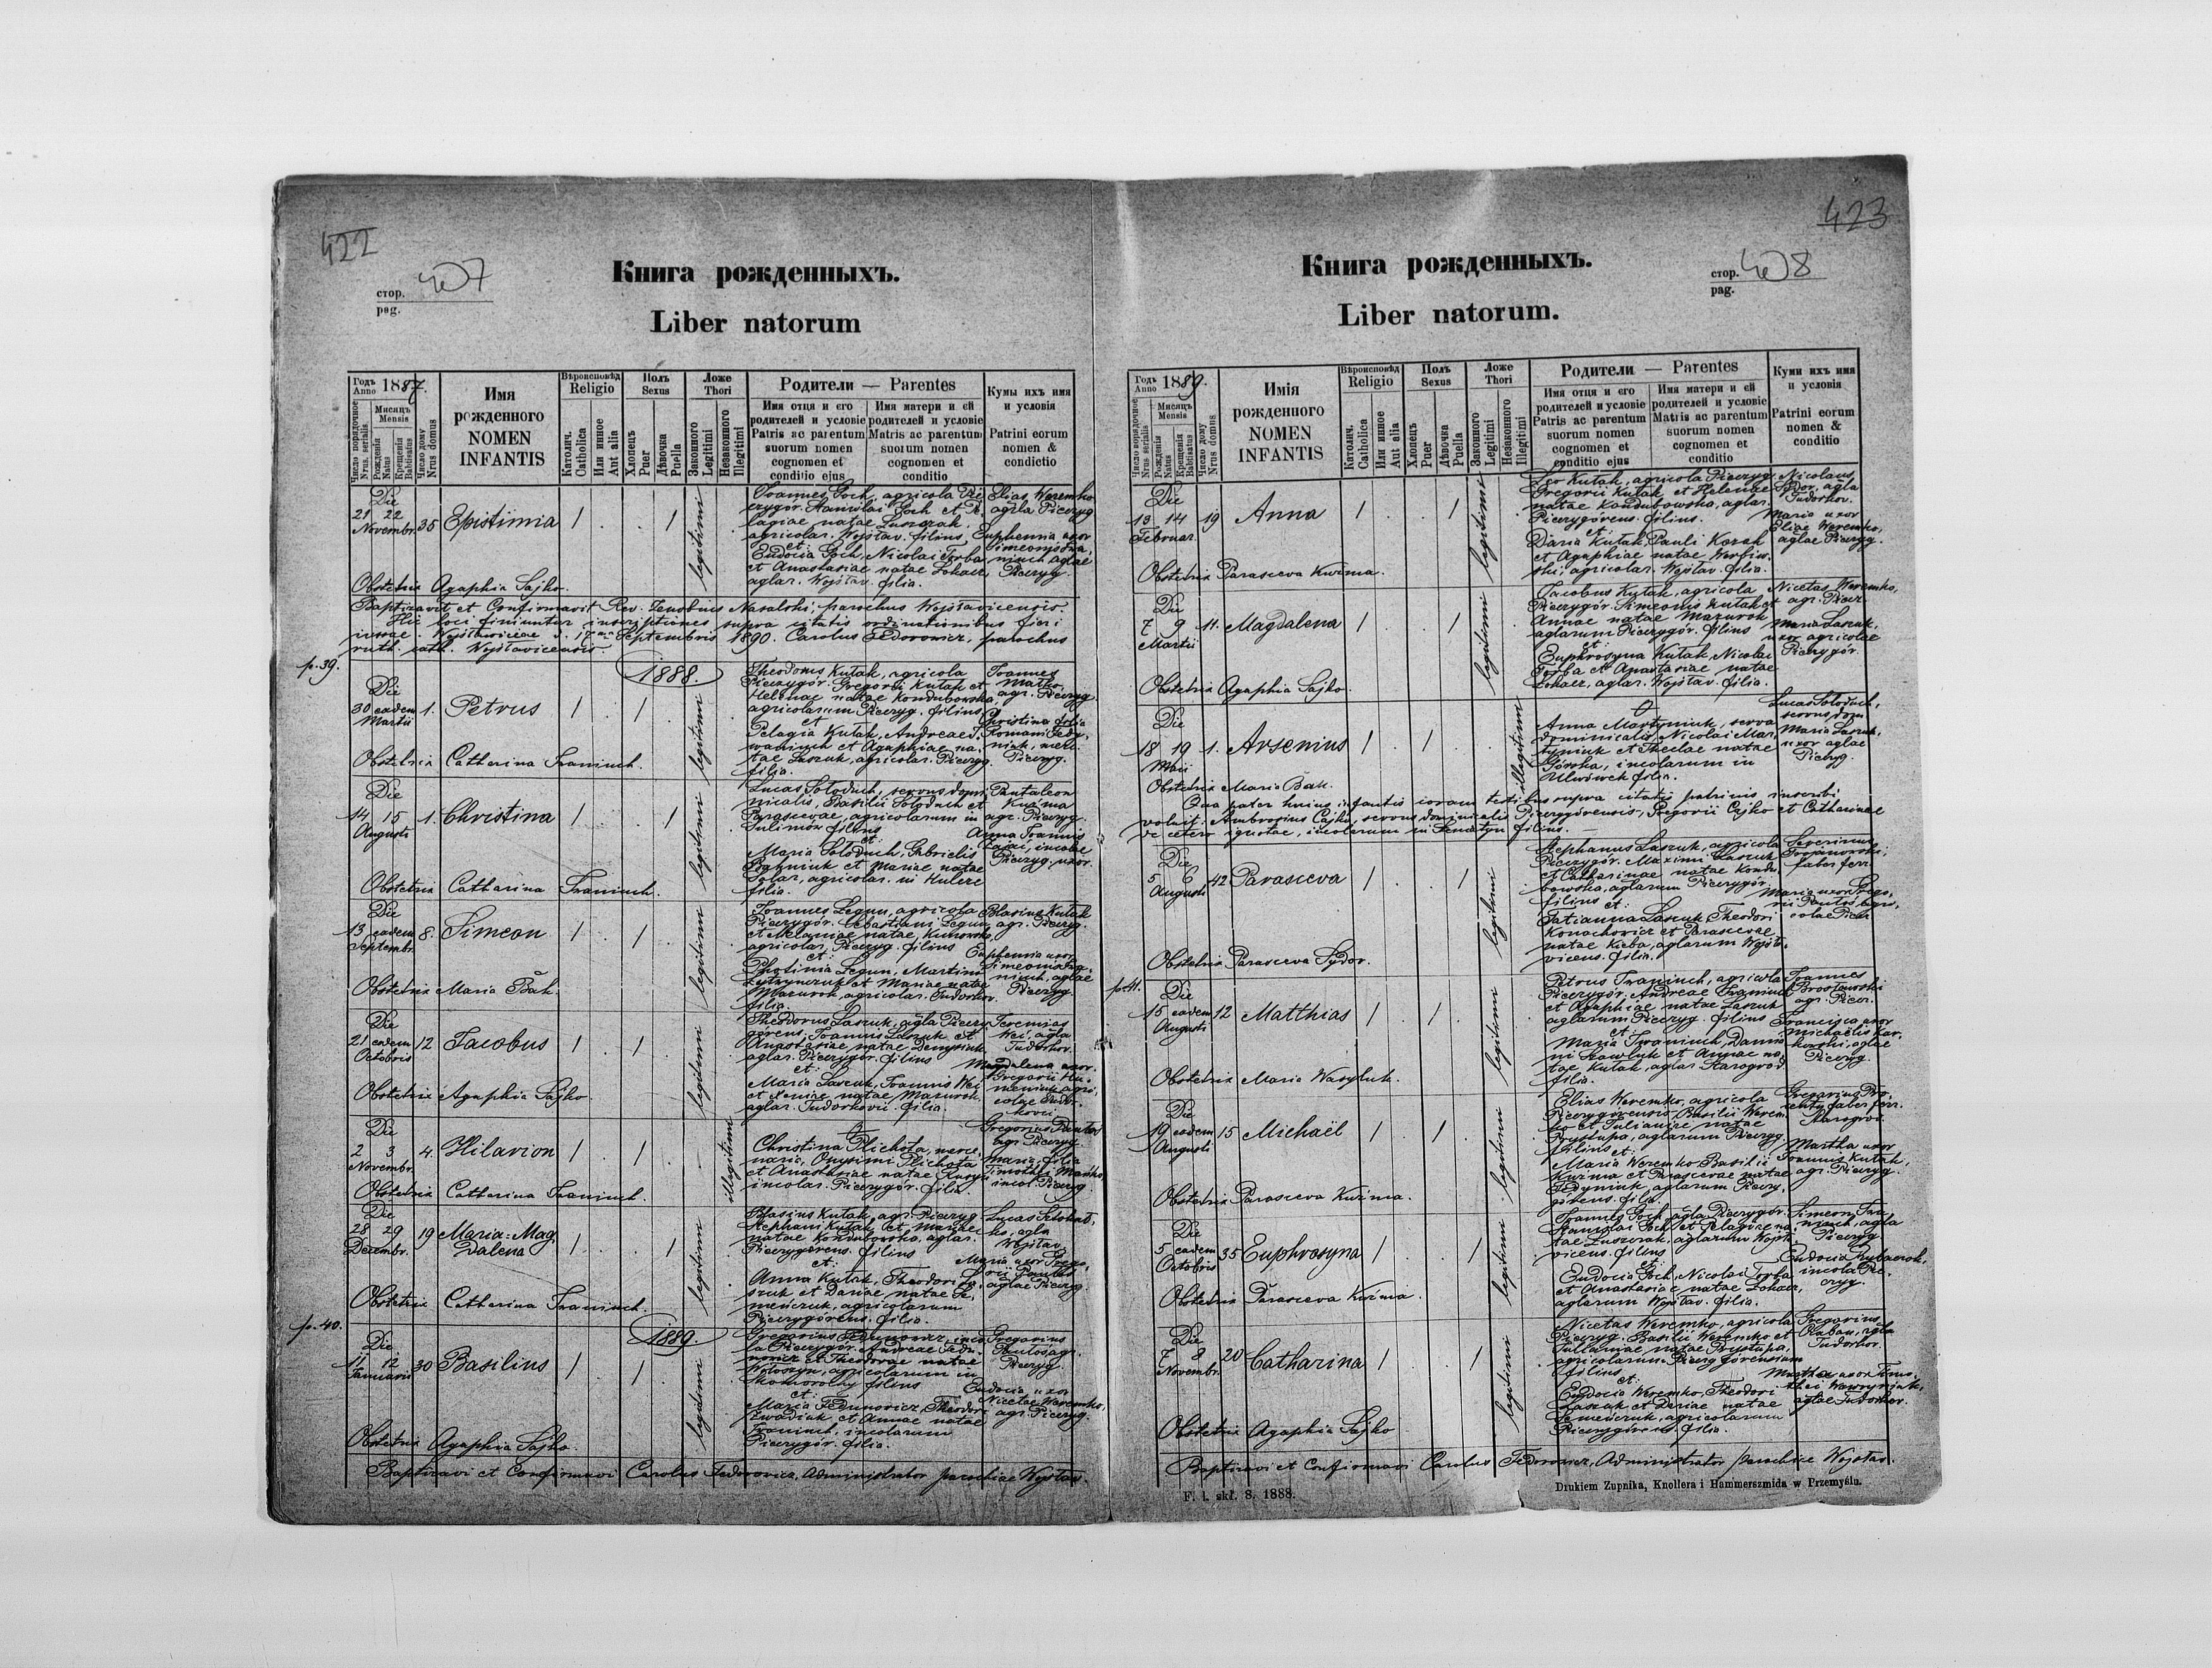 422
стор. pag. 407
Книга рожденныхъ.
Liber natorum
Годъ Anno 1887.
Мисяцъ Mensis
Число порядочное Nrus. serialis
Рожденія Natus
Крещенія Babtisatus
Число дому Nrus domus
Имя рожденного NOMEN INFANTIS
Вѣроисповѣд Religio
Католич. Catholica
Или инное Aut alia
Полъ Sexus
Хлопецъ Puer
Дѣвочка Puella
Ложе Thori
Законного Legitimi
Незаконного Illegitimi
Родители — Parentes
Имя отця и его родителей и условіе Patris ac parentum suorum nomen cognomen et conditio ejus
Имя матери и ей родителей и условіе Matris ac parentum suorum nomen cognomen et conditio
Кумы ихъ имя и условія Patrini eorum nomen & condictio
Die
21 22 Novembr. 35 Epistimia 1 . . 1 legitimi
Joannes Goch, agricola Picz
erygór. Stanislai Goch et Pe
lagiae natae Luszczak
agricolar. Wojsław. filius
et:
Eudocia Goch, Nicolai Torba
et Anastasiae natae Lokacz,
aglar. Wojsław. filia.
Elias Weremko
agrla Piczryg
Euphemia uxor
Simeonis
niuch aglae
Piczryg.
Obstetrix Agaphia Sajko.
Baptizavit et Confirmavit Rev. Zenobius Nasalski, parochus Wojsławicensis.
Hic loci finiuntur inscriptiones supra citatis ordinationibus fieri
iussae. Wojsławicae d. 17 Septembris 1890. Carolus Fedorowicz, parochus
ruth. cath. Wojsławicensis.
p. 39.
1888.
Die
30 eadem Martii 1. Petrus 1 . 1 . legitimi
Theodorus Kutak, agricola
Piczrygór. Gregorii Kutak et
Helenae natae Kondubowska,
agricolarum Piczryg. filius
et
Pelagia Kutak, Andreae I
waniuch et Agaphiae na
tae Laszuk, agricolar. Piczryg.
filia.
Joannes
Matko
agr. Piczryg
Christina filia
Romani Fedy
niuk,
Piczryg.
Obstetrix Catharina Iwaniuch.
Die
14 15 Augusti 1. Christina 1 . . 1 legitimi
Lucas Sołoduch, servus domi
nicalis, Basilii Sołoduch et
Parascevae, agricolarum in
Sulimów filius
et:
Maria Sołoduch, Gabrielis
et Mariae natae
agricolar. in Hulcze
filia.
Pantaleon
Kuźma
agr. Piczryg.
Anna Joannis
Zajac, incolae
Piczryg. uxor.
Obstetrix Catharina Iwaniuch.
Die
13 eadem Septembr. 8. Simeon 1 . 1 . legitimi
Joannes Legun, agricola
Piczrygór. Sebastiani Legun
et Melaniae natae
agricolar. Piczryg. filius
et:
Photinia Legun, Martini
et Mariae natae
Mazurok, agricolar. Tudorkov.
filia.
Blasius Kutak
agr. Piczryg.
Euphemia uxor
Simeonis
niuch, aglae
Piczryg.
Obstetrix Maria Bak.
Die
21 eadem Octobris 12 Jacobus 1 . 1 . legitimi
Theodorus Laszuk, agla Piczry
górens. Joannis Laszuk et
Anastasiae natae
aglar. Piczrygór. filius
et:
Maria Laszuk, Joannis Wei
et Xeniae natae Mazurok
aglar. Tudorkovii. filia.
Jeremias
Wei, agla
Tudorkov.
Magdalena uxor
Gregorii Hu
meniuk agri
colae Tudor
kovii.
Obstetrix Agaphia Sajko.
Die
2 3 Novembr. 4. Hilarion 1 . 1 . illegitimi
Christina Plichota, merce
naria, Onysimi Plichota
et Anastasiae natae
incolar. Piczrygór. filia.
Gregorius Pantos
agr. Piczryg
Maria, filia
Timothei Matko
incol Piczryg.
Obstetrix Catharina Iwaniuch.
Die
28 29 Decembr. 19 Maria-Mag
dalena 1 . . 1 legitimi
Blasius Kutak, agr. Piczryg
Stephani Kutak et Mariae
natae Kondubowska, aglar.
Piczrygorens. filius
et:
Anna Kutak, Theodori La
szuk et Dariae natae Se
meńczuk, agricolarum
Piczrygórens. filia.
Lucas
ko, agla
Wojsław.
Maria uxor Grego
rii Pantos
aglae Piczryg.
Obstetrix Catharina Iwaniuch.
p. 40.
1889.
Die
11 12 Januarii 30 Basilius 1 . 1 . legitimi
Gregorius Fedunowicz, inco
la Piczrygór. Andreae Fedu
nowicz et Theodorae natae
Wołoszyn, agricolarum in
Skomorochy filius
et:
Maria Fedunowicz, Theodori
et Annae natae
Iwaniuch, incolarum
Piczrygór. filia.
Gregorius
Pantos agr.
Piczryg.
Eudocia uxor
Nicetae Weremko,
agr. Piczryg.
Obstetrix Agaphia Sajko.
Baptizavi et Confirmavi Carolus Fedorowicz, Administrator parochiae Wojsław.
423
стор. pag. 408
Книга рожденныхъ.
Liber natorum.
Годъ Anno 1889.
Мисяцъ Mensis
Число порядочное Nrus serialis
Рожденія Natus
Крещенія Babtisatus
Число дому Nrus domus
Имія рожденного NOMEN INFANTIS
Вѣроисповѣд Religio
Католич. Catholica
Или инное Aut alia
Полъ Sexus
Хлопецъ Puer
Дѣвочка Puella
Ложе Thori
Законного Legitimi
Незаконного Illegitimi
Родители — Parentes
Имя отця и его родителей и условіе Patris ac parentum suorum nomen cognomen et conditio ejus
Имя матери и ей родителей и условіе Matris ac parentum suorum nomen cognomen et conditio
Кумы ихъ имя и условія Patrini eorum nomen & conditio
Die
13 14 Februar. 19 Anna 1 . . 1 legitimi
Leo Kutak, agricola Piczryg.
Gregorii Kutak et Helenae
natae Kondubowska, aglar.
Piczrygórens. filius.
et:
Daria Kutak, Pauli Kozak
et Agaphiae natae Werbic
ski, agricolar. Wojsław. filia.
Nicolaus
Sydor, agla
Tudorkov.
Maria uxor
Eliae Weremko,
aglae Piczryg.
Obstetrix Parasceva Kuźma.
Die
7 9 Martii 11. Magdalena 1 . . 1 legitimi
Jacobus Kutak, agricola
Piczrygór. Simeonis Kutak et
Annae natae Mazurok
aglarum Piczrygór. filius
et:
Euphrosyna Kutak, Nicolai
Torba et Anastasiae natae
Lokacz, aglar. Wojsław. filia.
Nicetas Weremko,
agr. Piczr.
Maria Laszuk,
uxor agricolae
Piczrygór.
Obstetrix Agaphia Sajko.
Die
18 19 Maii 1. Arsenius 1 . 1 . illegitimi
Anna Martyniuk, serva
dominicalis, Nicolai Mar
tyniuk et Theclae natae
Górska, incolarum in
Uhrówek filia.
Lucas Sołoduch,
servus dom.
Maria Laszuk,
uxor aglae
Piczryg.
Obstetrix Maria Bak.
Qua pater huius infantis coram testibus supra citatis patrinis inscribi
voluit Ambrosius Cajko, servus dominicalis Piczrygórensis, Gregorii Cajko et Catharinae
de cetero ignotae, incolarum in filius.
Die
5 6 Augusti 42 Parasceva 1 . . 1 legitimi
Stephanus Laszuk, agricola
Piczrygór. Maximi Laszuk
et Catharinae natae Kondu
bowska, aglarum Piczrygór.
filius et:
Tatianna Laszuk, Theodori
Konachowicz et Parascevae
natae Kieba, aglarum Wojsła
vicens. filia.
Severinus
faber ferr.
Maria uxor Grego
rii Pantos agri
colae Piczr
Obstetrix Parasceva Sydor.
p. 41.
Die
15 eadem Augusti 12 Matthias 1 . 1 . legitimi
Petrus Iwaniuch, agricola
Piczrygór. Andreae Iwaniuch
et Agaphiae natae Laszuk
aglarum Piczryg. filius
et:
Maria Iwaniuch, Danie
lis Pawluk et Annae na
tae Kutak, aglar. Starogród.
filia.
Joannes
Brosławski
agr. Piczr.
Francisca uxor
Michaelis Kar
kowski, aglae
Piczryg.
Obstetrix Maria Wasyluk.
Die
19 eadem Augusti 15 Michaël 1 . 1 . legitimi
Elias Weremko, agricola
Piczrygórensis, Basilii Werem
ko et Julianae natae
Prystupa, aglarum Piczryg.
filius et:
Maria Weremko Basilii
Kuźma et Parascevae natae
Fedyniuk, aglarum Piczry
górens. filia.
Gregorius
faber ferr.
Starogrod.
Martha uxor
Joannis Kutak,
agr. Piczryg.
Obstetrix Parasceva Kuźma.
Die
5 eadem Octobris 35 Euphrosyna 1 . . 1 legitimi
Joannes Goch, agla Piczrygór.
Stanislai Goch et Pelagiae na
tae Luszczak, aglarum Wojsła
vicens. filius
et:
Eudocia Goch, Nicolai Torba
et Anastasiae natae Lokacz,
aglarum Wojsław. filia.
Simeon Iwa
niuch, agla
Piczryg.
Eudocia
incola Pic
zryg.
Obstetrix Parasceva Kuźma.
Die
7 8 Novembr. 20 Catharina 1 . . 1 legitimi
Nicetas Weremko, agricola
Piczryg. Basilii Weremko et
Julianae natae Prystupa,
agricolarum Piczrygórensium
filius
et:
Eudocia Weremko, Theodori
Laszuk et Dariae natae
Semeńczuk, agricolarum
Piczrygórens. filia.
Gregorius
agla
Tudorkov.
Martha uxor Timo
thei Wawryniuk,
aglae Tudorkov.
Obstetrix Agaphia Sajko
Baptizavi et Confirmavi Carolus Fedorowicz, Administrator parochiae Wojsław.
F. l. skł. 8. 1888.
Drukiem Żupnika, Knollera i Hammerszmida w Przemyślu.